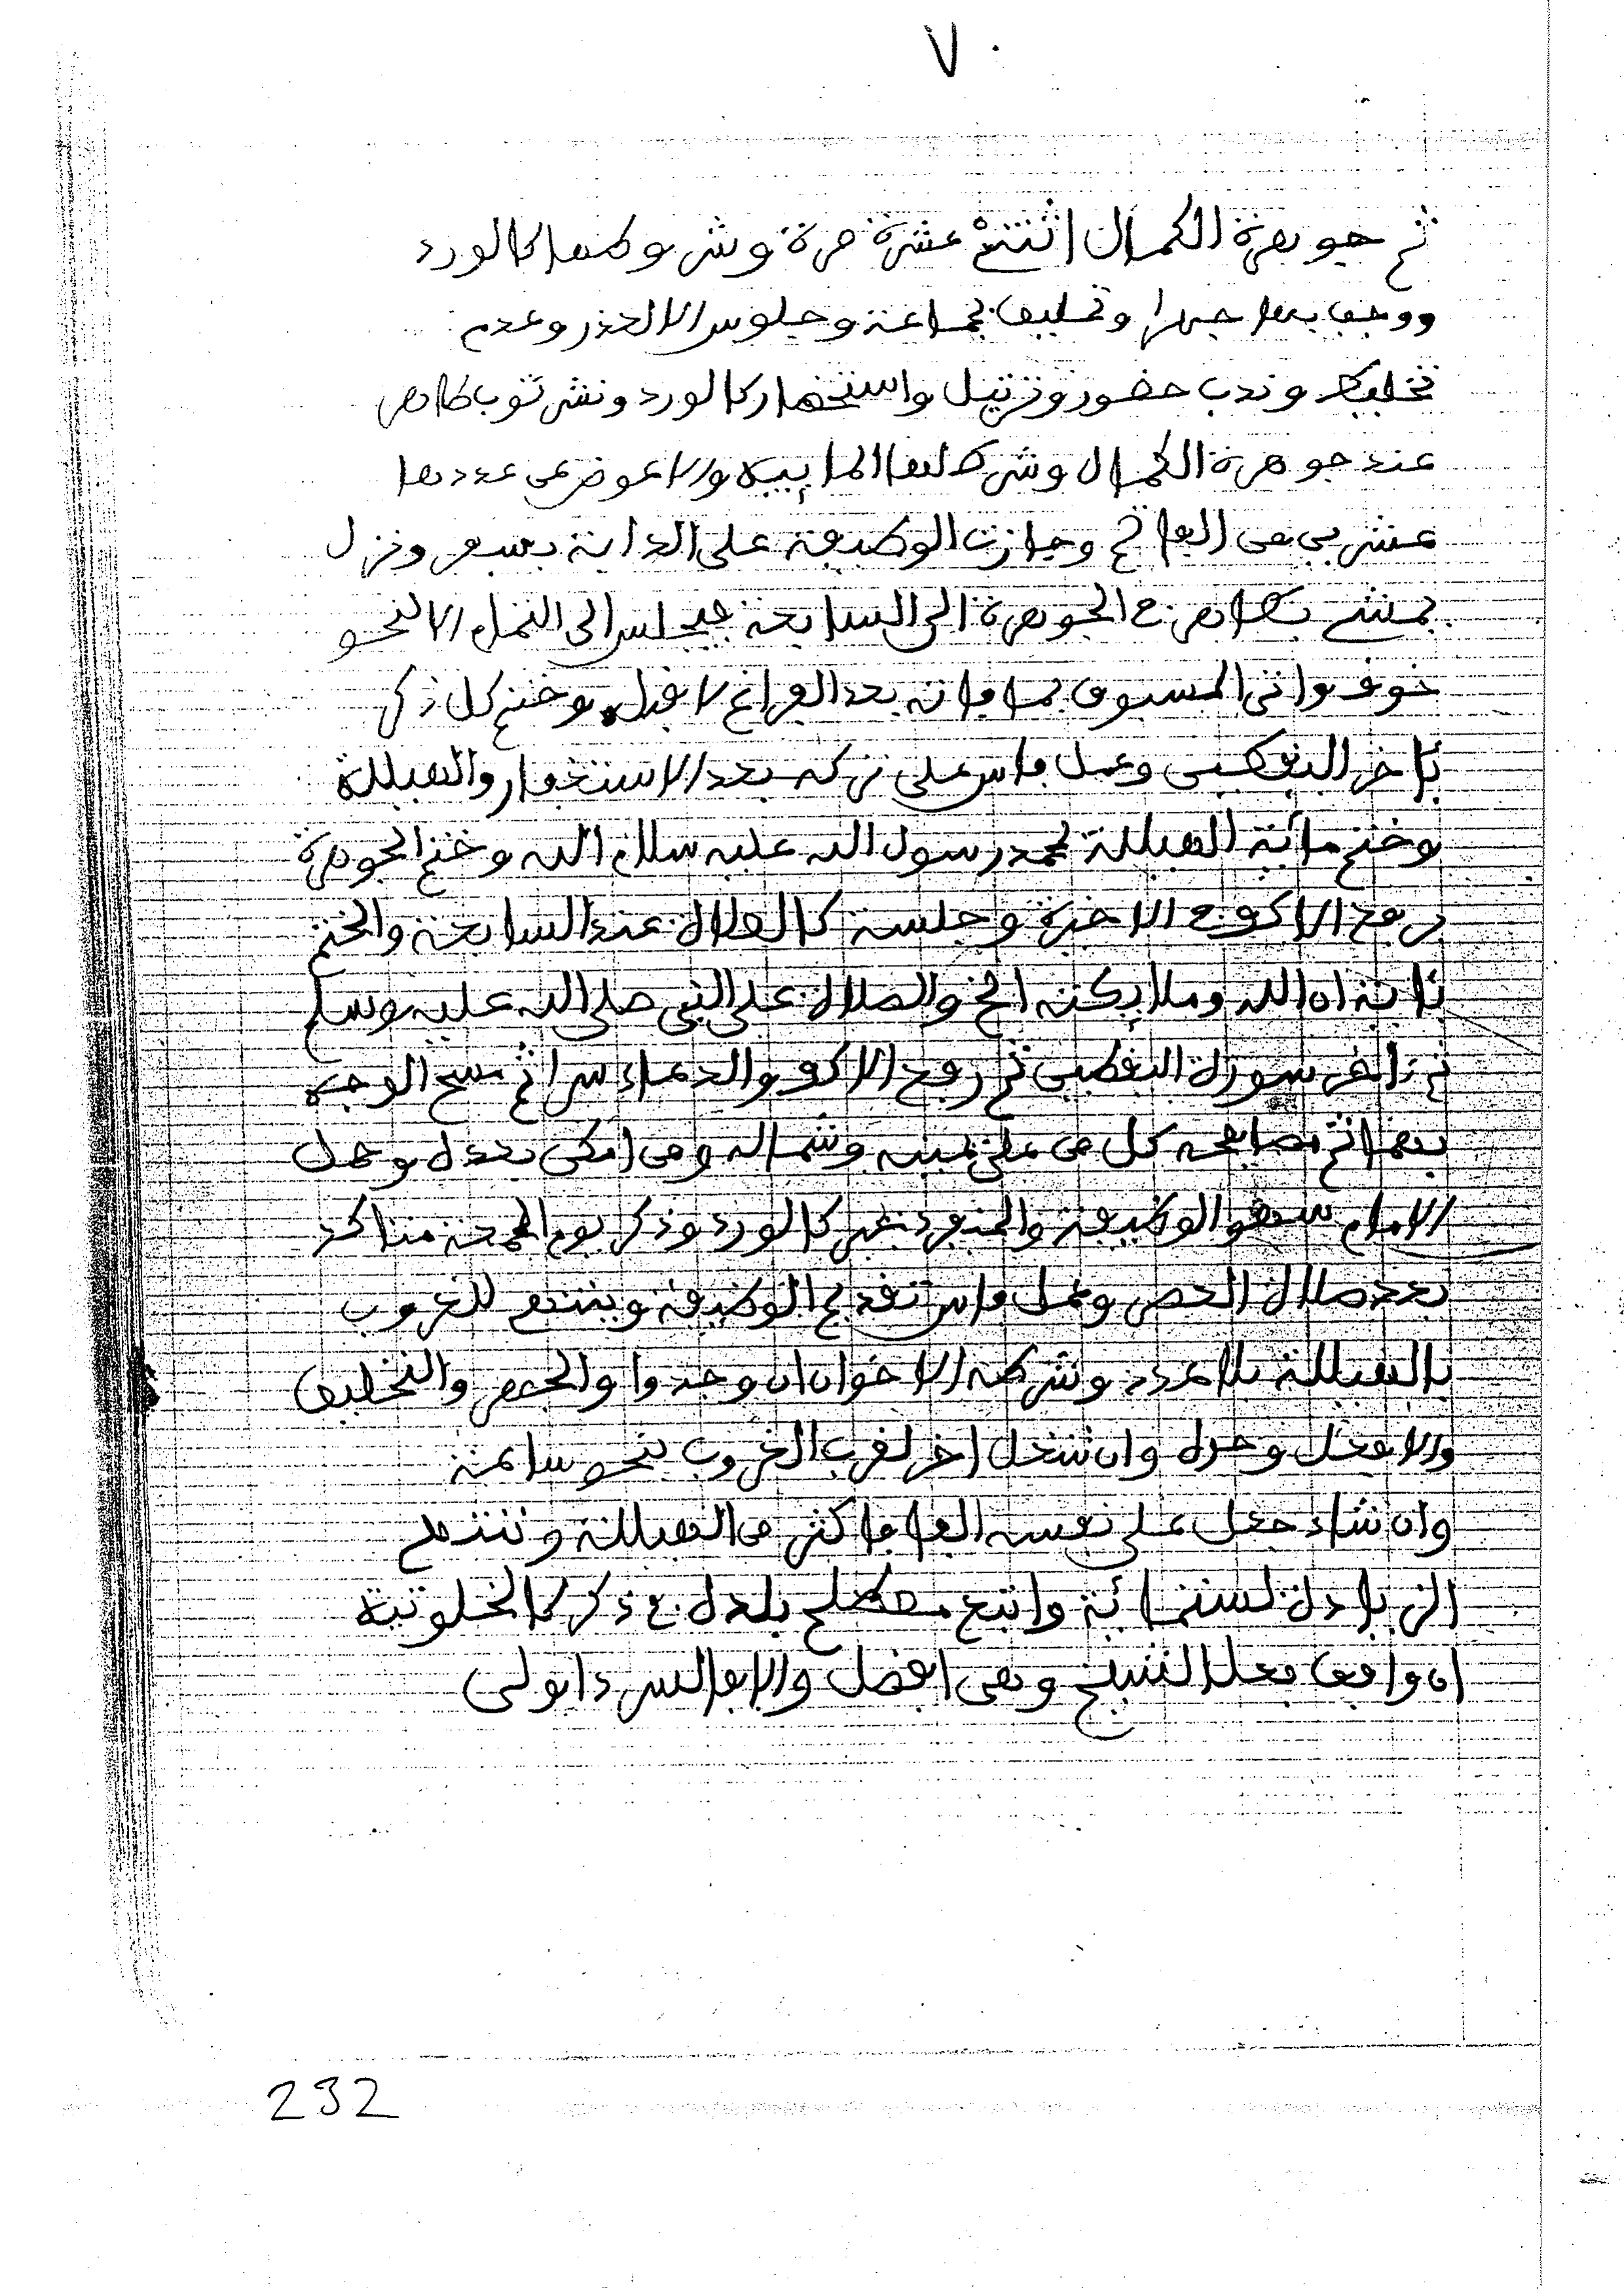 ٧٠
ثم جوهرة الكمال اثنتى عشرة مرة وشروطها كالورد
ووجب بها جهرا وتحليق بجماعة وجلوس الا لعذر وعدم
تخليط وندب حضور وترتيل واستحضار كالورد ونشر ثوب طاهر
عند جوهرة الكمال وشرط لها المائية ولا عوض عن عددها
عشرين من الفاتح وجازت الوظيفة على الدابة بسفر ونزل
بمشي بطاهر ع الجوهرة الى السابعة فيجلس الى التمام الا لنحو
خوف واتى المسبوق بما فاته بعد الفراغ لا قبله وختم كل ذكر
بآخر اليقطين وعمل فاس على تركه بعد الاستغفار والهيللة
وختم مائة الهيللة لمحمد رسول الله عليه سلام الله وختم الجوهرة
برفع الاكف ع الاخيرة وجلسة كالصلاة عند السابعة والختم
بآية ان الله وملائكته الخ والصلاة على النبي صلى الله عليه وسلم
ثم آخر سورة اليقطين ثم رفع الاكف والدعاء سرا ثم مسح الوجه
بهما ثم مصافحة كل من على يمينه وشماله ومن امكن بعده وحمل
الامام سهو الوظيفة والمنفرد يجبر كالورد وذكر يوم الجمعة متاكد
بعد صلاة العصر وعمل فاس تقديم الوظيفة وينتهي للغروب
بالهيللة بلا عدد وشرطه الاخوان ان وجدوا والجهر والتحليق
والا فعل وحده وان شغل اخر لقرب الغروب بنحو ساعة
وان شاء جعل على نفسه الفا فاكثر من الهيللة وتنتهي
الزيادة لستمائة واتبع مصطلح بلده ع ذكر كالخلوتية
ان وافق فعل الشيخ وهي افضل والا فالسرد اولى
232